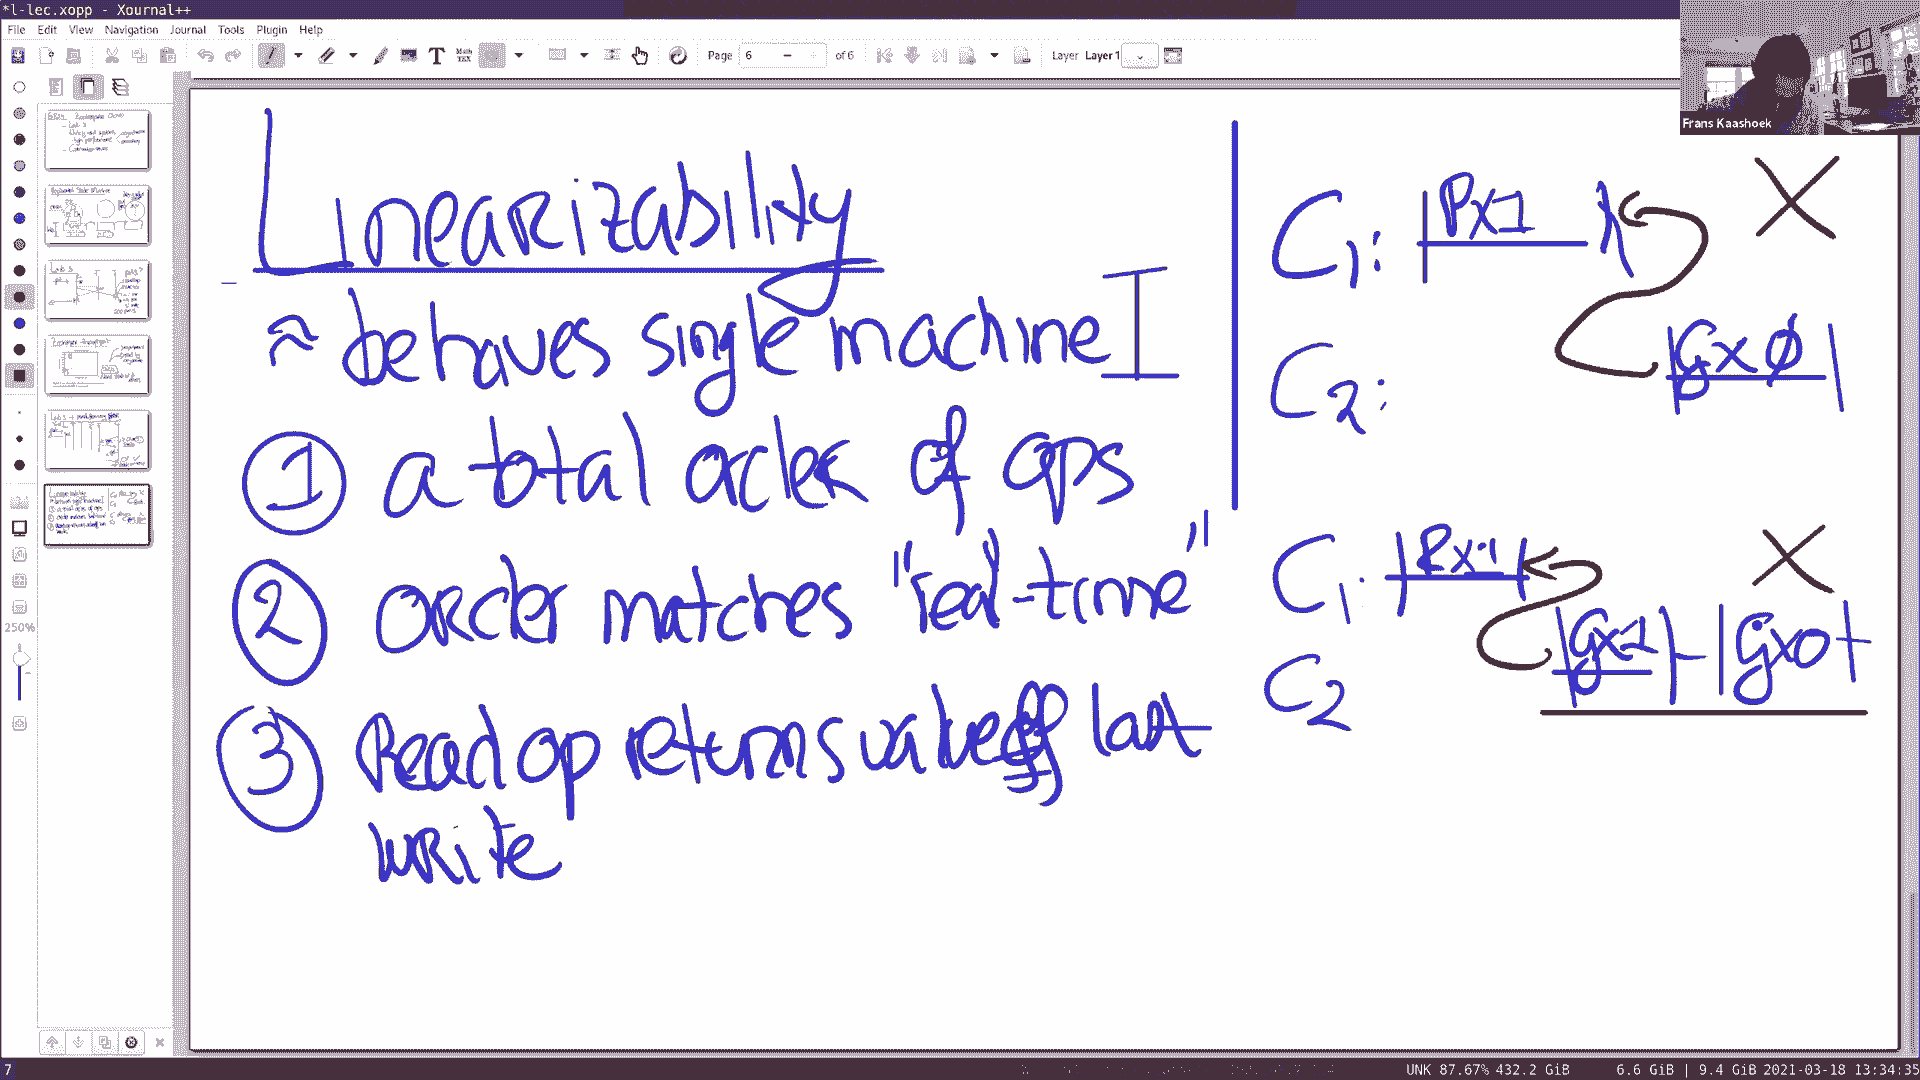 *l-lec.xopp - Xournal++
File Edit View Navigation Journal Tools Plugin Help
Page 6 of 6 Layer Layer1
Frans Kaashoek
Linearizability
≈ behaves single machine
1 a total order of ops
2 order matches "real-time"
3 Read op returns value of last
write
C1: Px1
C2: Gx0
C1: Px1
C2 Gx1 Gx0
250%
7
UNK 87.67% 432.2 GiB 6.6 GiB | 9.4 GiB 2021-03-18 13:34:35